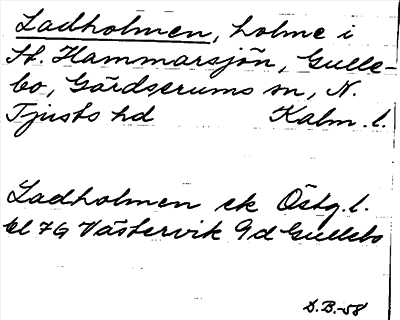 Ladholmen, holme i
St. Hammarsjön, Gulle-
bo, Gärdserums sn, N.
Tjusts hd Kalm. l.
Ladholmen ek Östg. l.
bl 7G Västervik 9d Gullebo
S.B.-58